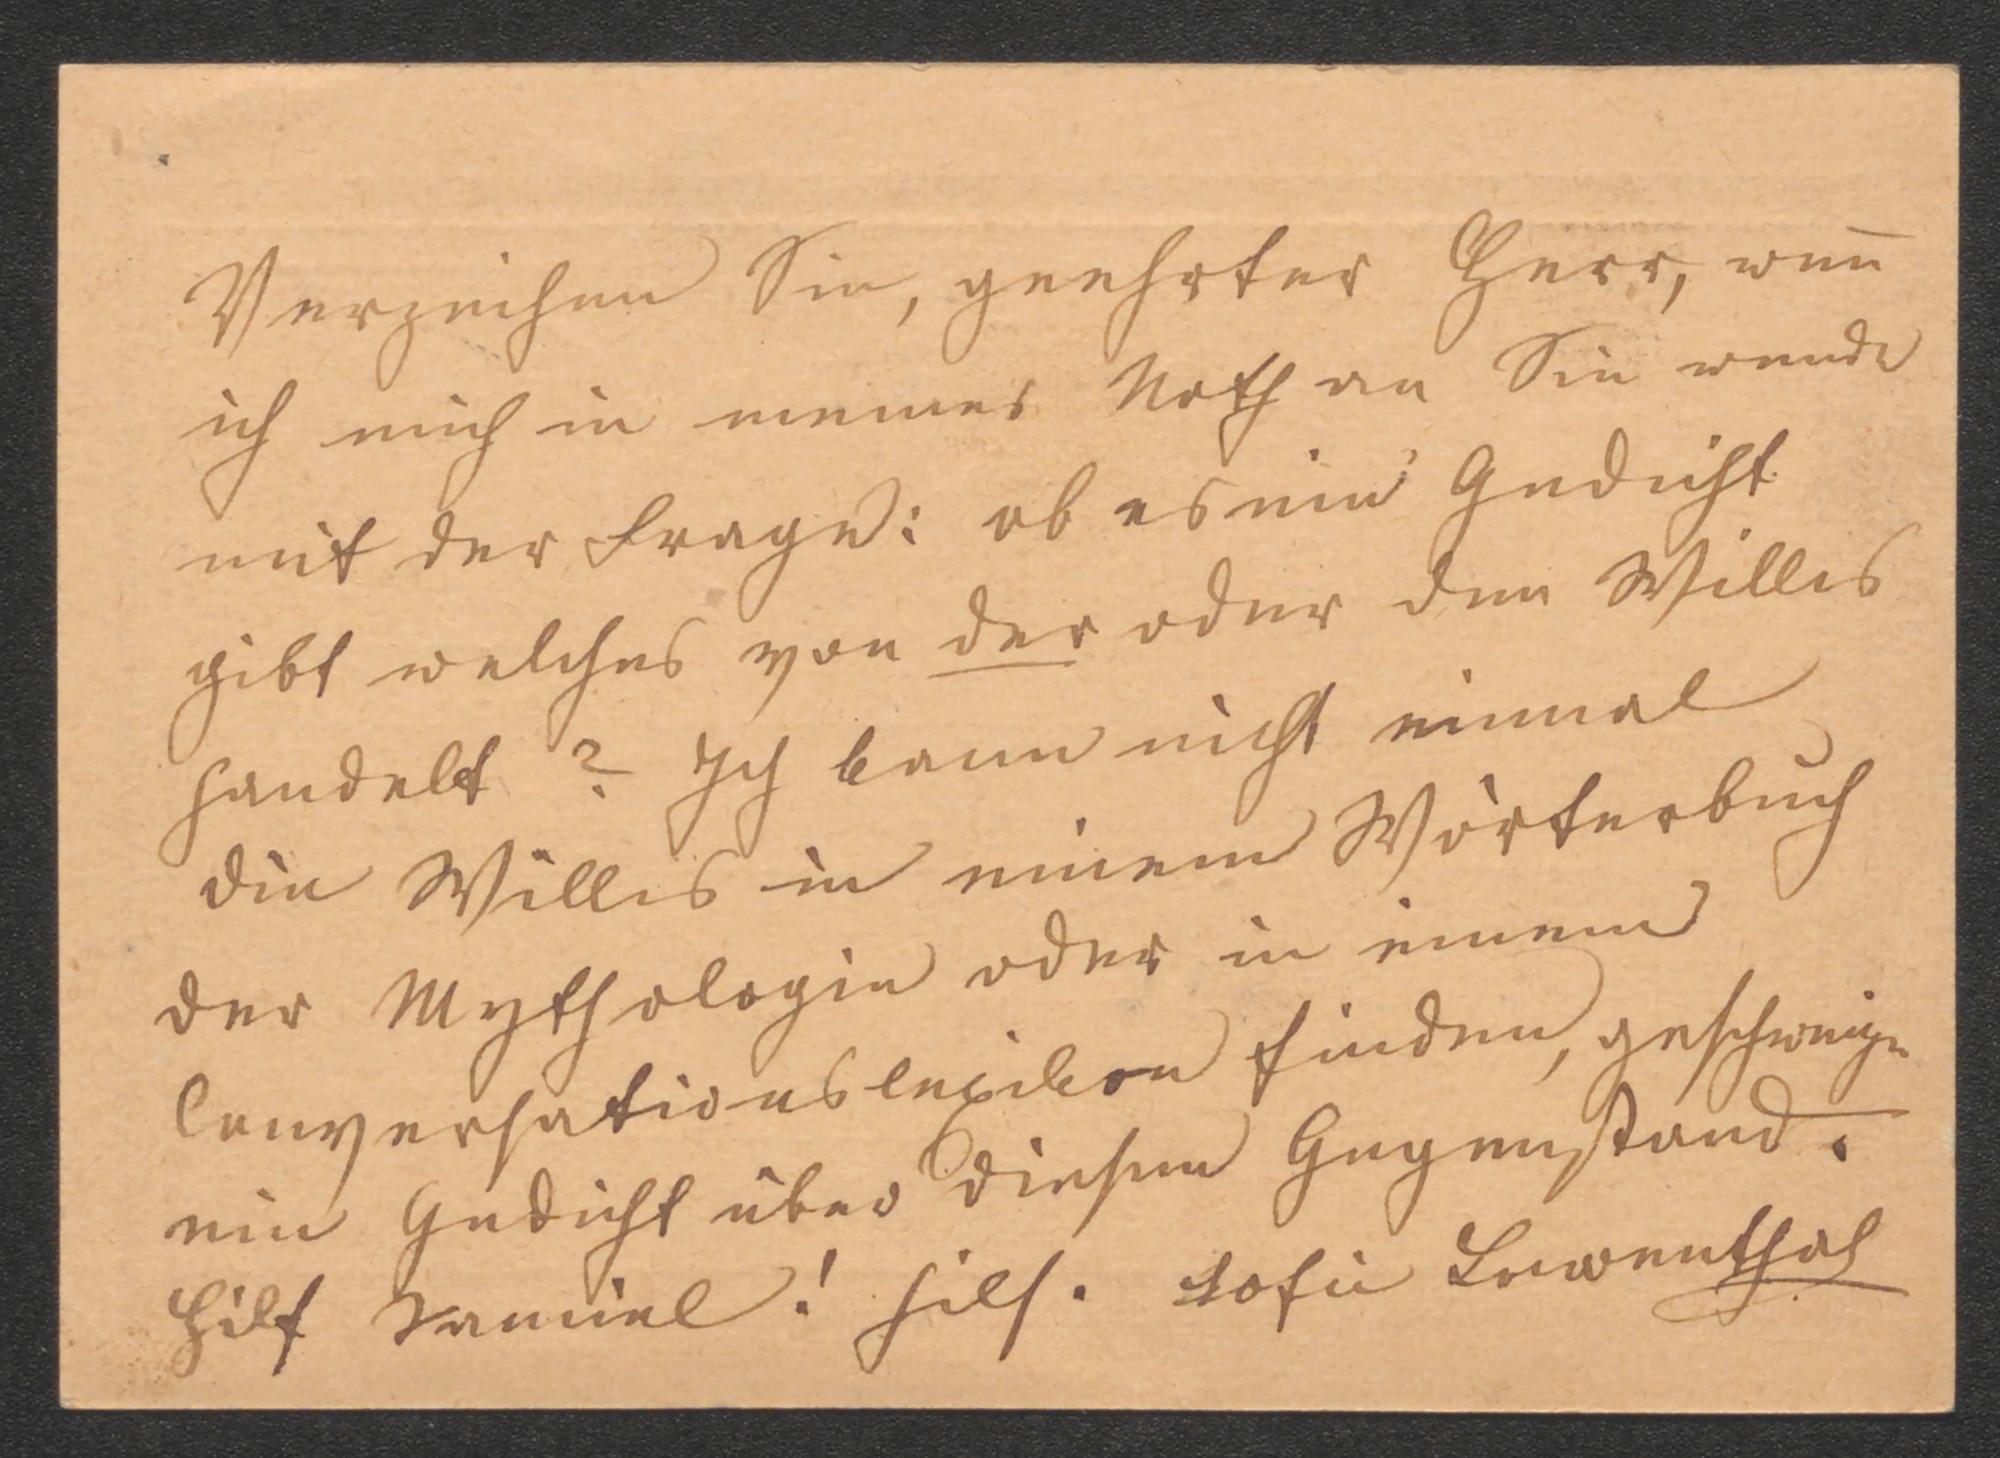 Verzeihen Sie, geehrter Herr, wen̅
ich mich in meiner Noth an Sie wende
mit der Frage: ob es ein Gedicht
gibt welches von der oder den Willis
handelt? Ich kann nicht einmal
die Willis in einem Wörterbuch
der Mythologie oder in einem
Conversationslexikon finden, geschweige
ein Gedicht über diesen Gegenstand.
Hilf Samiel! hilf. Sofie Lowenthal